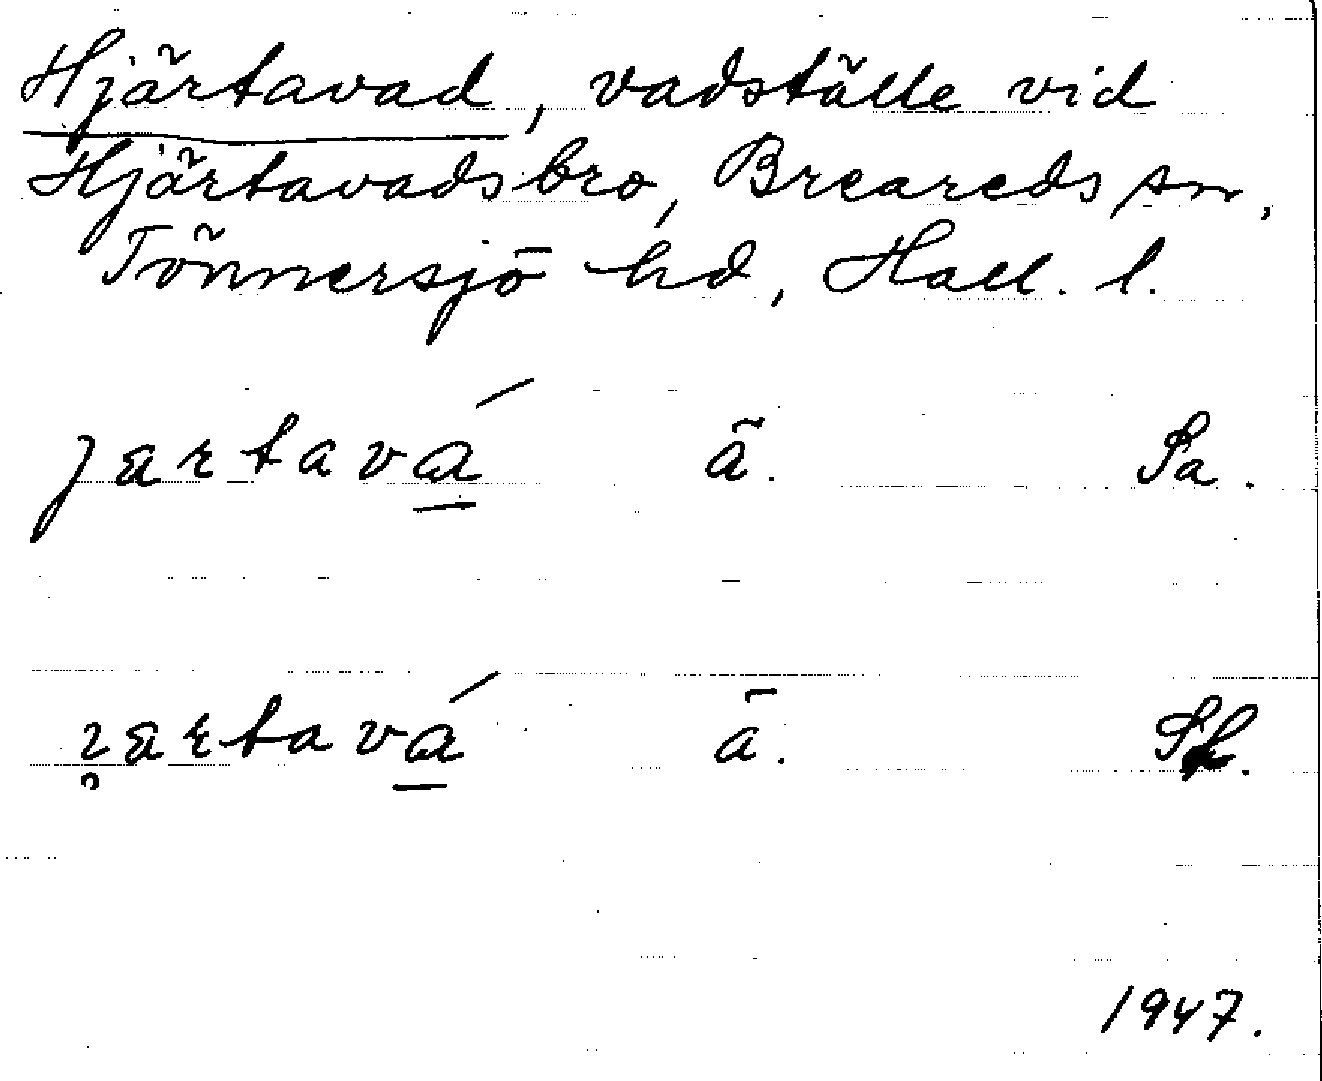 Hjärtavad, vadställe vid
Hjärtavadsbro, Breareds sn,
Tönnersjö hd, Hall. l.
jartavá ā. Sa.
ā.
1947.